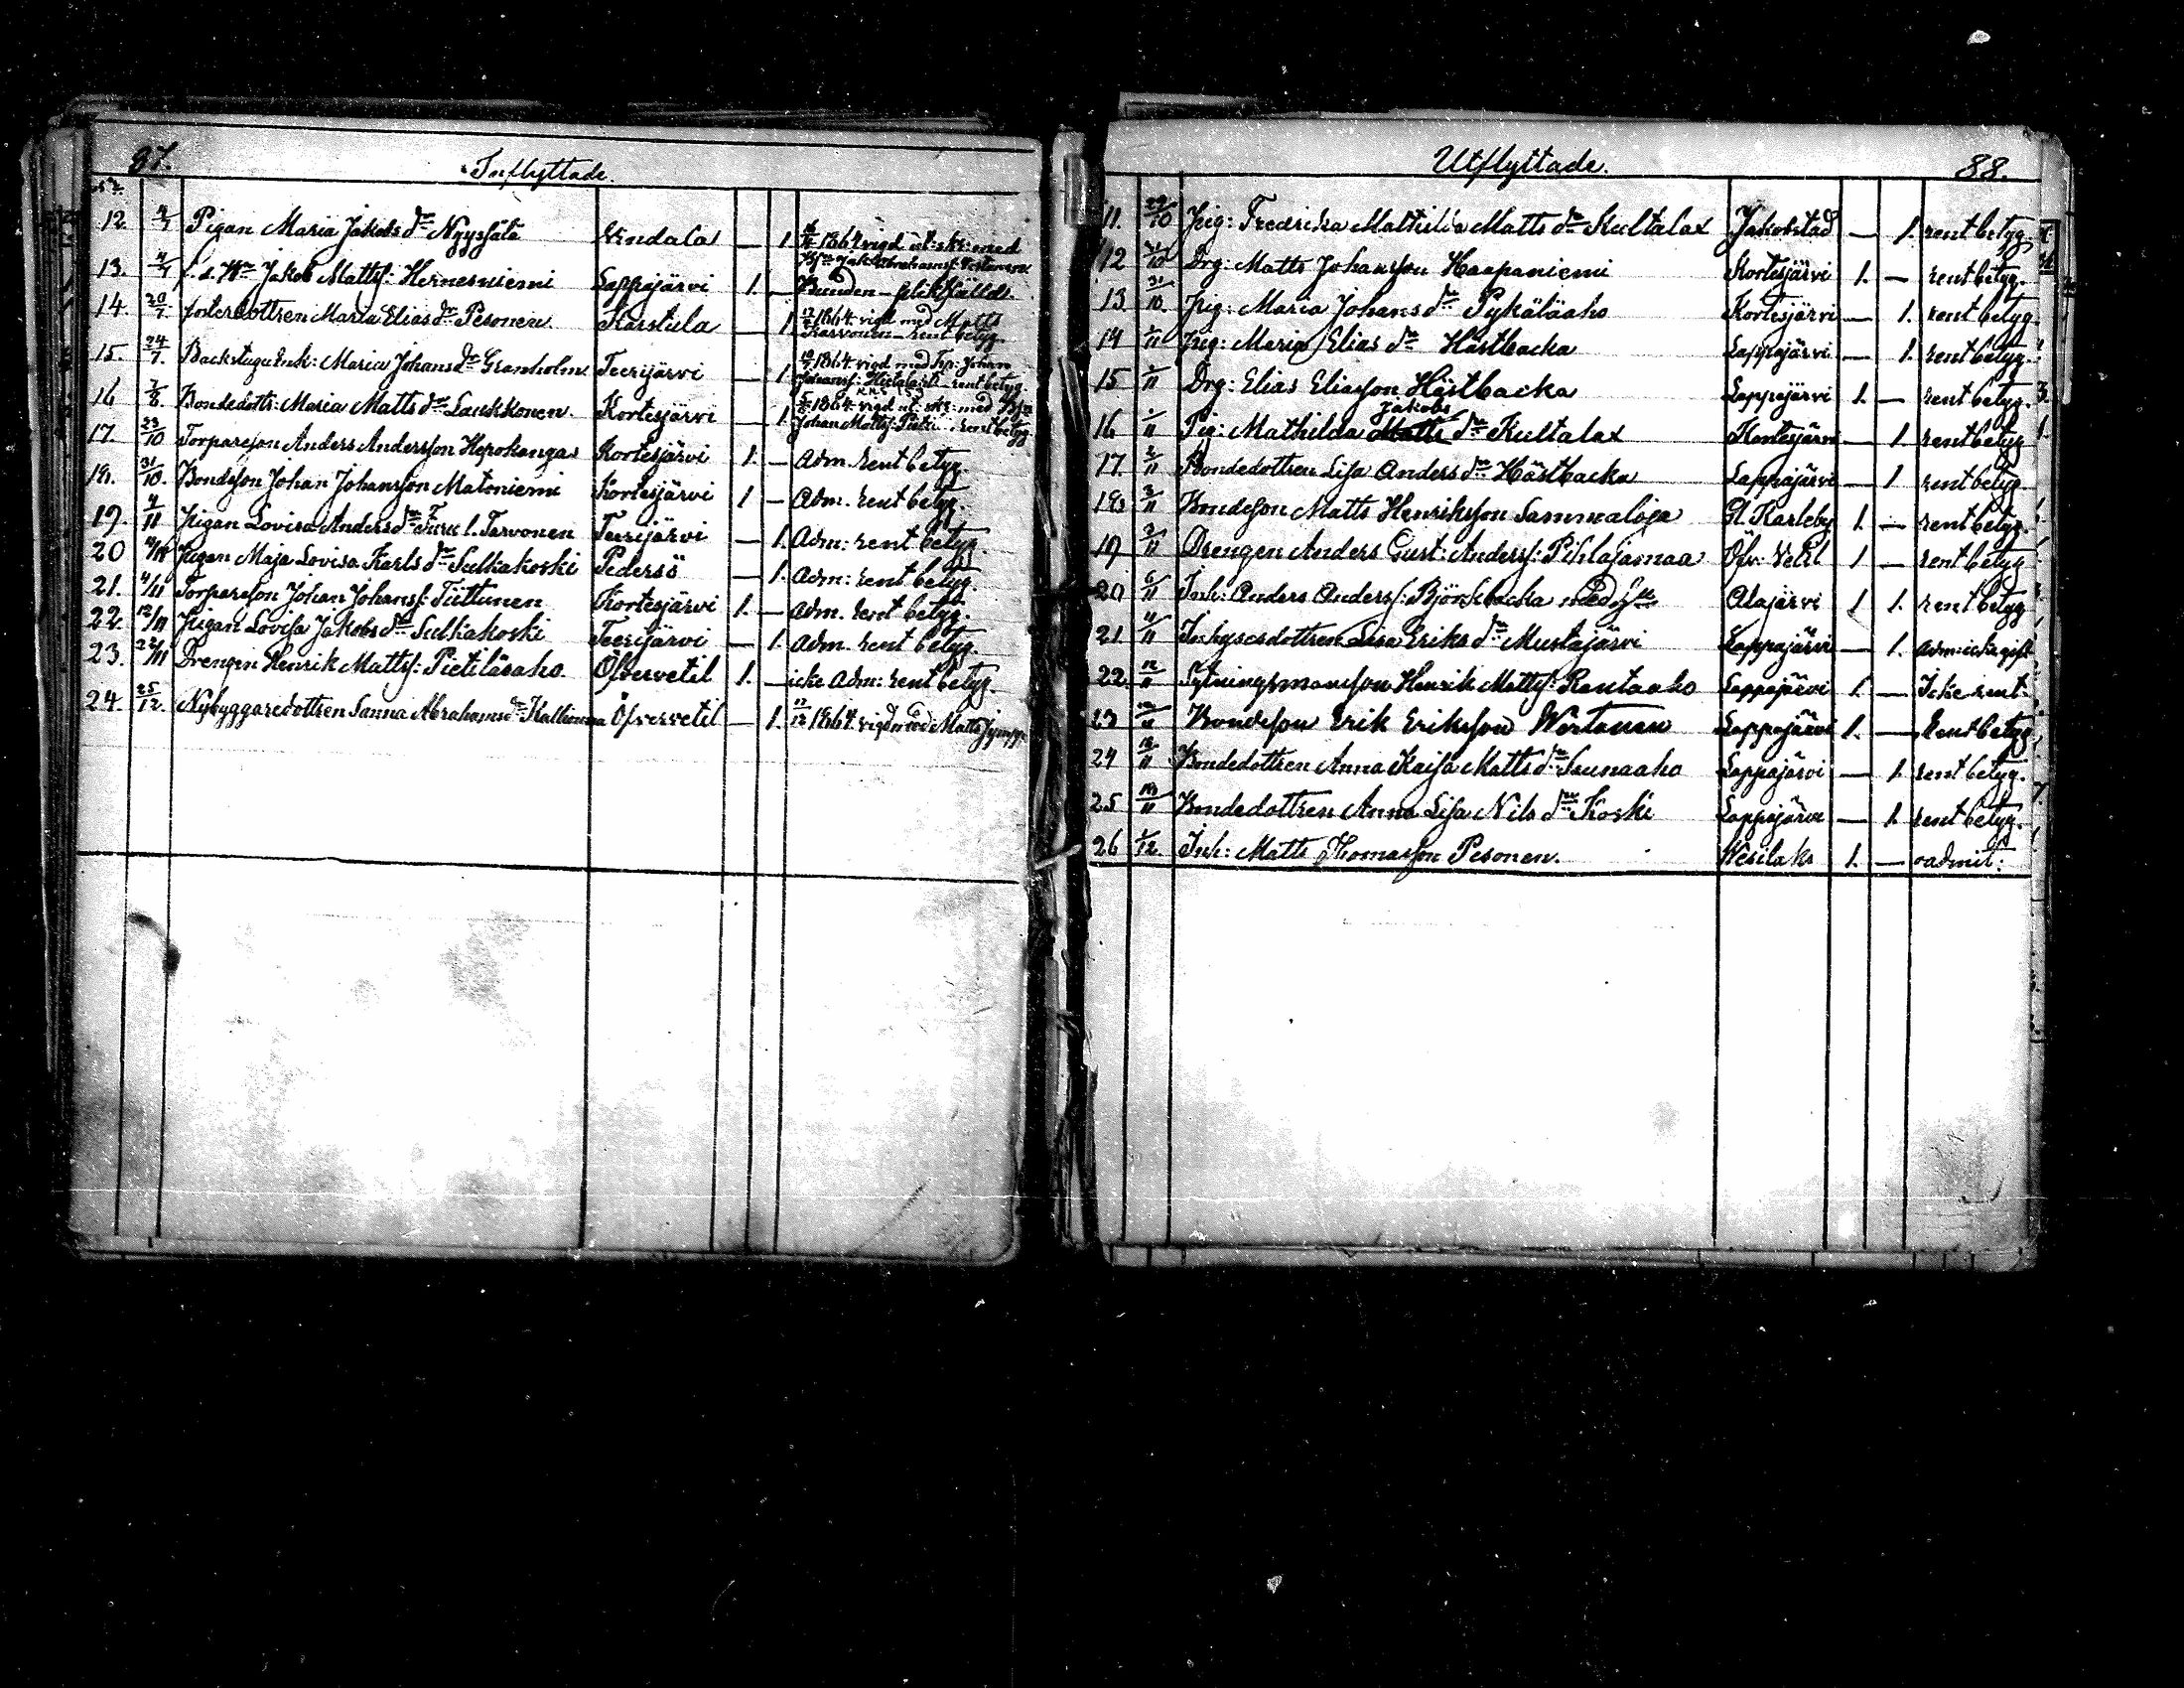 87. Inflyttade.
No
12. 4/7 Pigan Maria Jakobs dr Nyyssälä Windala — 1. 1864 vigd med
13. 4/7 f. d. Jakob Mattss: Hernesniemi Lappajärvi 1. — Bunden
14. 20/7 fosterdottren Maria Elias dr Pesonen. Karstula — 1 1864 vigd med Matts
Karvonen — rent betyg.
15. 24/7. Backstugu Enk: Maria Johans dr Granholm Teerijärvi — 1. 1864 vigd med Johan
Johanss: rent betyg.
16 Bondedottr: Maria Matts dr Laukkonen Kortesjärvi — 1 1864 vigd med
Johan Mattss: rent betyg
17. 23/10 Torpareson Anders Andersson Hepokangas Kortesjärvi 1. — Adm. rent betyg.
18. 31/10. Bondeson Johan Johansson Matoniemi Kortesjärvi 1 — Adm. rent betyg.
19. 4/11 Pigan Lovisa Anders dr Turu l. Tervonen Teerijärvi — 1. Adm: rent betyg.
20 4/11 Pigan Maja Lovisa Karls dr Sulkakoski Pedersö — 1. Adm: rent betyg.
21. 4/11 Torpareson Johan Johanss: Tiittunen Kortesjärvi 1. — Adm. rent betyg.
22. 12/11 Pigan Lovisa Jakobs dr Sulkakoski Teerijärvi — 1. Adm. rent betyg.
23. 22/11 Drengen Henrik Mattss: Pietiläsaho. Öfvervetil 1. — icke Adm: rent betyg.
24. 25/12. Nybyggaredottren Sanna Abrahams dr Öfvervetil — 1. 1864 vigd med Matts
Utflyttade. 88.
11. 29/10 Pig: Fredrika Mathilda Matts dr Kultalax Jakobstad — 1. rent betyg
12 31/10 Drg: Matts Johansson Haapaniemi Kortesjärvi 1. — rent betyg.
13 31/10. Pig: Maria Johans dr Pykäläaho Kortesjärvi — 1. rent betyg.
14 1/11 Pig: Maria Elias dr Hästbacka Lappajärvi — 1. rent betyg.
15 1/11 Drg: Elias Eliasson Hästbacka Lappajärvi 1. — rent betyg.
Jakobs
16 1/11 Pig: Mathilda Matts dr Kultalax Kortesjärvi — 1 rent betyg
17. 2/11 Bondedottren Lisa Anders dr Hästbacka Lappajärvi — 1 rent betyg.
18 3/11 Bondeson Matts Henriksson Sammaloja Gl. Karleby 1. — rent betyg.
19 3/11 Drengen Anders Gust: Anderss: Pihlajamaa Öfv: Vetil 1 — rent betyg
20 6/11 Inh: Anders Anderss: Björkbacka med Alajärvi 1 1. rent betyg
21 11/11 Inhysesdottren Lisa Eriks dr Mustajärvi Lappajärvi — 1. Adm: icke gift
22. 12/11 Henrik Mattss: Rantaaho Lappajärvi 1. — Icke rent.
23 12/11 Bondeson Erik Eriksson Wirtanen Lappajärvi 1. — Rent betyg
24 18/11 Bondedottren Anna Kaisa Matts dr Saunaaho Lappajärvi — 1. rent betyg.
25 18/11 Bondedottren Anna Lisa Nils dr Koski Lappajärvi — 1. rent betyg.
26 1/12. Inh: Matts Thomasson Pesonen. Wesilaks 1. — oadmit: